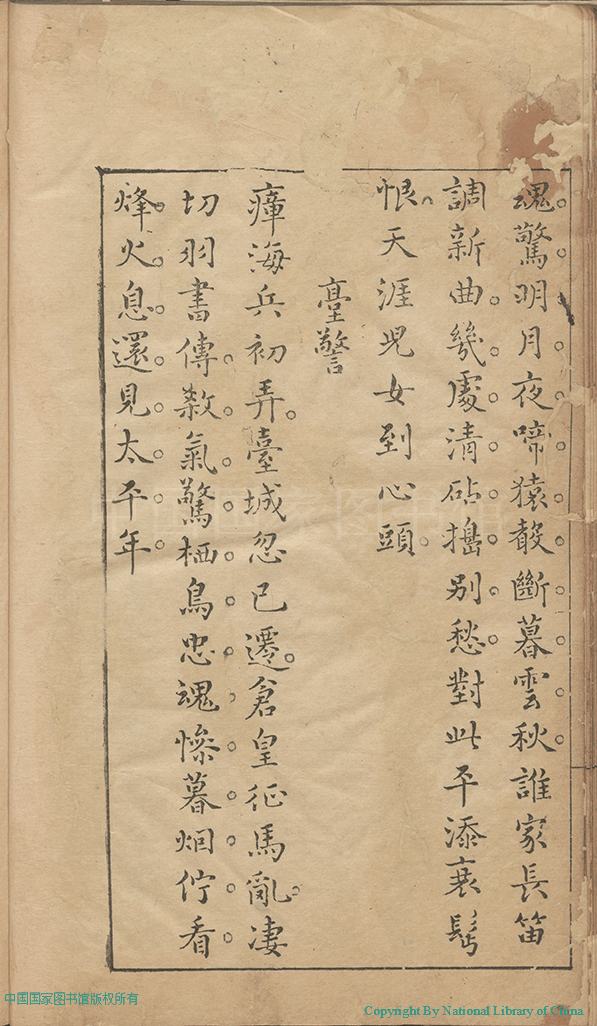 魂驚明月夜啼猿殸斷暮雲秋誰家長笛
調新曲幾處清砧搗別愁對此平添衰鬢
恨天涯兒女到心頭
臺警
瘴海兵初弄臺城忽已遷倉皇征馬亂凄
切羽書傳殺氣驚栖鳥忠魂慘暮烟佇看
烽火息還見太平年
中国国家图书馆版权所有
Copyright By National Library of China